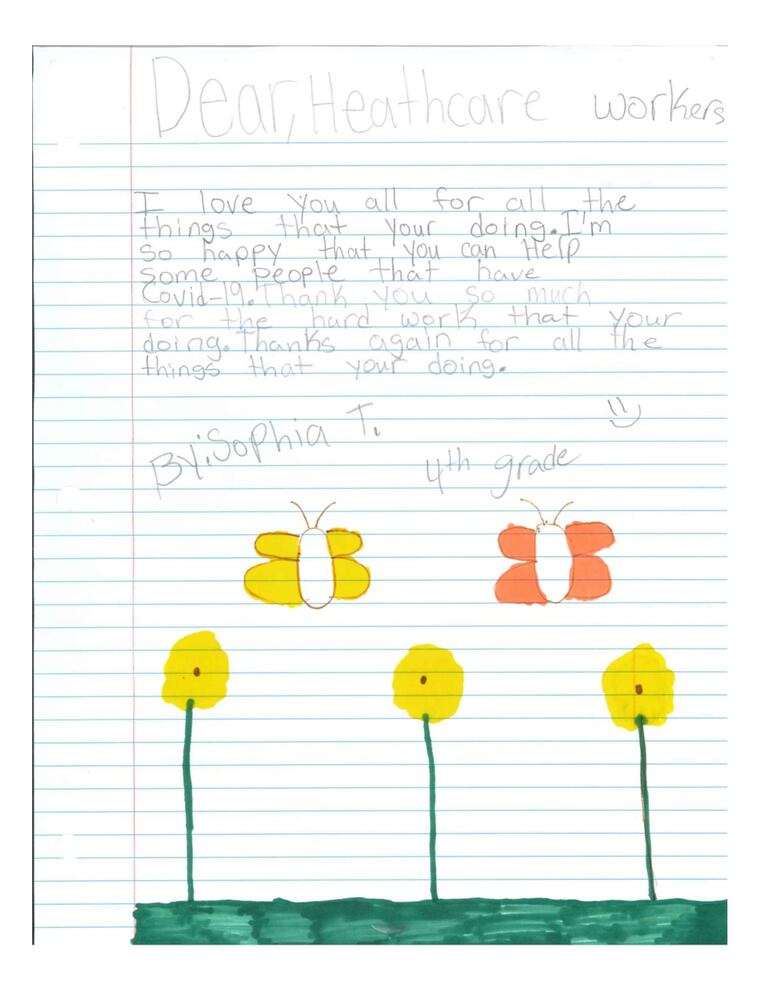 Dear, Heathcare workers
I love you all for all the
things that your doing. I'm
so happy that you can Help
some people that have
Covid-19. Thank you so much
for the hard work that your
doing. Thanks again for all the
things that your doing.
By: Sophia T.
4th grade